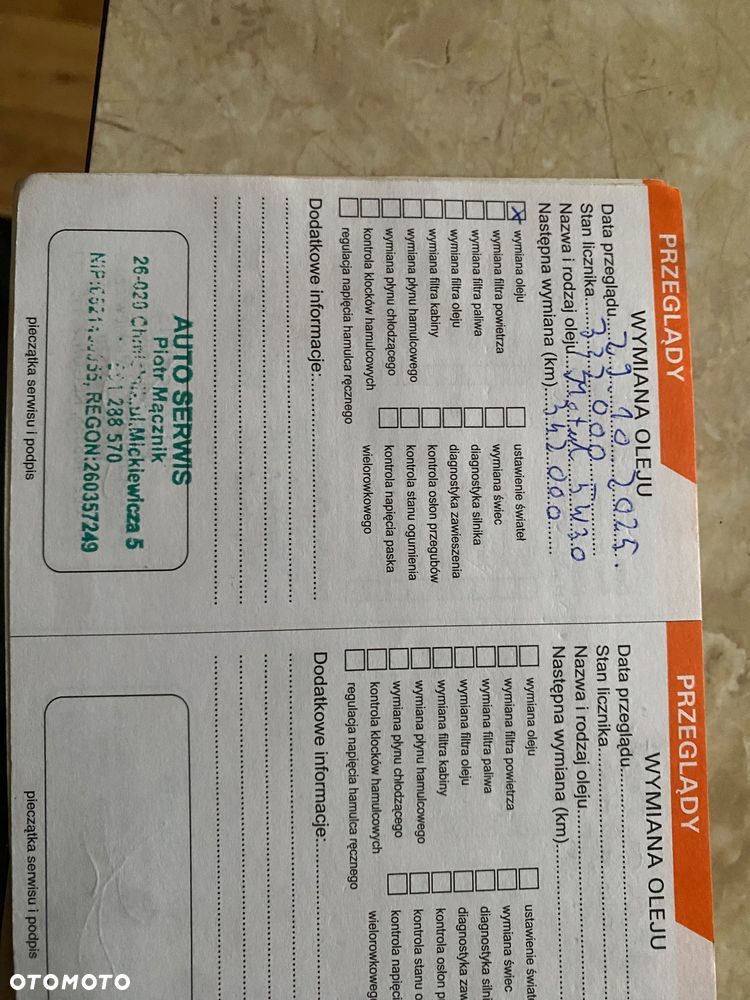 PRZEGLĄDY
WYMIANA OLEJU
Data przeglądu 29 10 2025.
Stan licznika
Nazwa i rodzaj oleju Motul 5W30
Następna wymiana (km) 342 000
x wymiana oleju
wymiana filtra powietrza
wymiana filtra paliwa
wymiana filtra oleju
wymiana filtra kabiny
wymiana płynu hamulcowego
wymiana płynu chłodzącego
kontrola klocków hamulcowych
regulacja napięcia hamulca ręcznego
ustawienie świateł
wymiana świec
diagnostyka silnika
diagnostyka zawieszenia
kontrola osłon przegubów
kontrola stanu ogumienia
kontrola napięcia paska
wielorowkowego
Dodatkowe informacje:
AUTO SERWIS
Piotr Mącznik
26-020 Mickiewicza 5
288 570
REGON:260357249
pieczątka serwisu i podpis
PRZEGLĄDY
WYMIANA OLEJU
Data przeglądu
Stan licznika
Nazwa i rodzaj oleju
Następna wymiana (km)
wymiana oleju
wymiana filtra powietrza
wymiana filtra paliwa
wymiana filtra oleju
wymiana filtra kabiny
wymiana płynu hamulcowego
wymiana płynu chłodzącego
kontrola klocków hamulcowych
regulacja napięcia hamulca ręcznego
ustawienie świateł
wymiana świec
diagnostyka
diagnostyka
kontrola osłon
kontrola stanu
kontrola
Dodatkowe informacje:
pieczątka serwisu i podpis
OTOMOTO